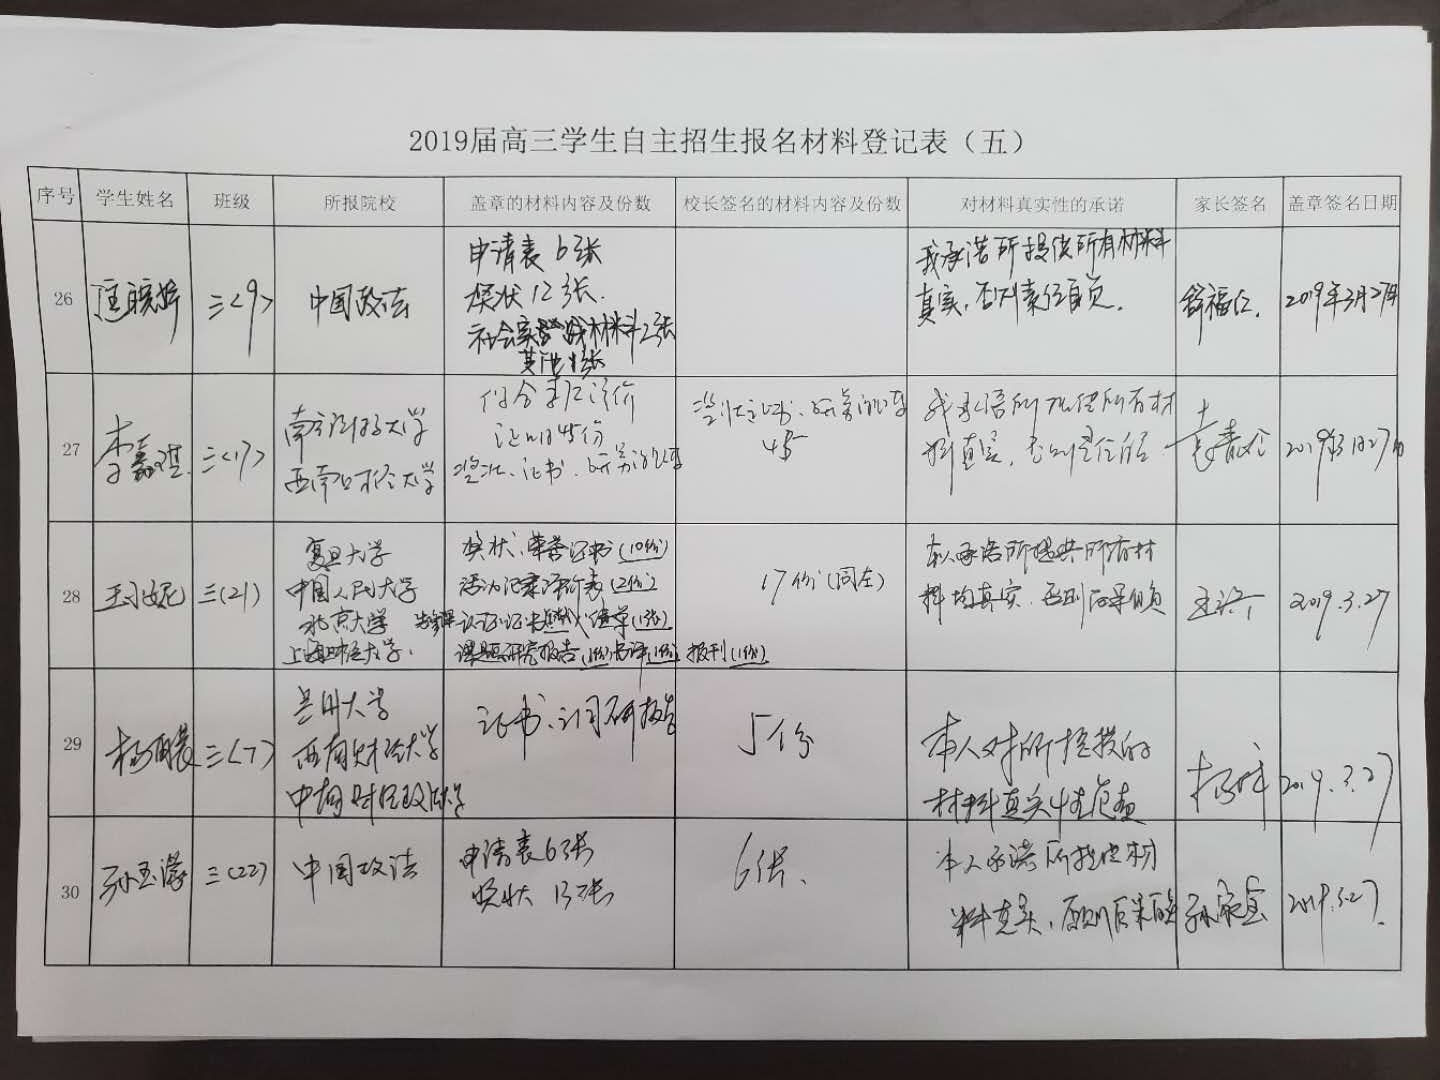 2019届高三学生自主招生报名材料登记表（五）
序号 学生姓名 班级 所报院校 盖章的材料内容及份数 校长签名的材料内容及份数 对材料真实性的承诺 家长签名 盖章签名日期
26 三<9> 中国政法
申请表6张
奖状12张.
社会实践材料2张
其他1张
我承诺所提供所有材料
真实,否则责任自负.
舒福仁. 2019年3月27日
27 李嘉琪. 三<17>
南方医科大学
西南财经大学
综合素质评价
证明45份
奖状、证书、研究性
奖状证书、研究性
45
我承诺所提供所有材
料真实,否则责任自
2019年3月27日
28 三(21)
复旦大学
中国人民大学
北京大学
上海财经大学.
奖状、荣誉证书(10份)
活动记录评价表(2份)
成绩单(1张)
课题研究报告(1份) 书评(1份) 报刊(1份)
17份(同左)
本人承诺所提供所有材
料均真实,否则后果自负
2019.3.27
29 三<7>
兰州大学
西南财经大学
中南财经政法大学
证书、调研报告
5份
本人对所提供的
材料真实性负责
2019.3.27
30 孙玉濛 三(22) 中国政法
申请表6张
奖状 13张
6张、
本人承诺所提供材
料真实,否则后果自负
孙家宝 2019.3.27.